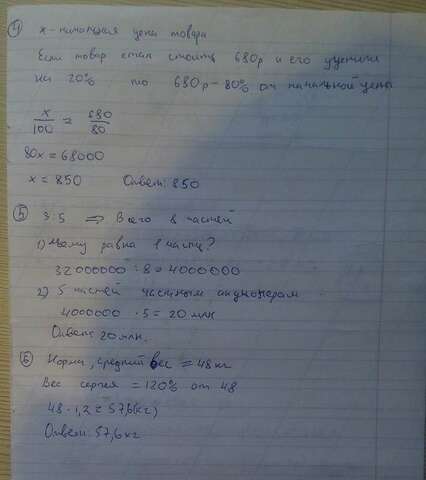 ④ x - начальная цена товара
Если товар стал стоить 680р и его уценили
на 20% то 680р - 80% от начальной цены
x/100 = 680/80
80x = 68000
x = 850 Ответ: 850
⑤ 3:5 => Всего 8 частей
1) Чему равна 1 часть?
32000000 : 8 = 4000000
2) 5 частей частным акционерам
4000000 · 5 = 20 млн
Ответ: 20 млн.
⑥ Норма, средний вес = 48кг
Вес сергея = 120% от 48
48 · 1,2 = 57,6(кг)
Ответ: 57,6кг